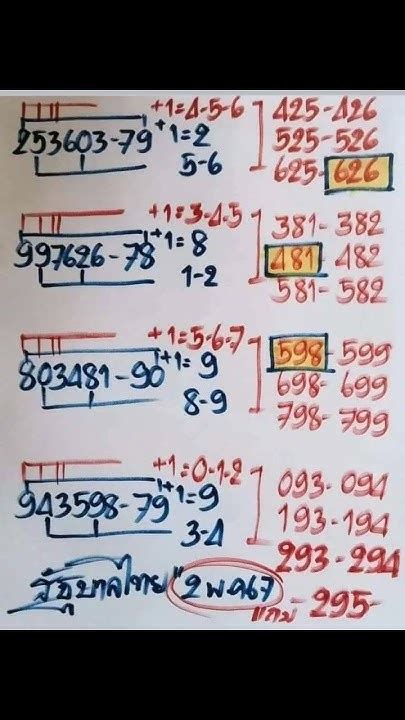 +1=4-5-6 425-426
253603-79 +1=2 525-526
5-6 625-626
+1=3-4-5 381-382
997626-78 +1=8 481-482
1-2 581-582
+1=5-6-7 598-599
803481-90 +1=9 698-699
8-9 798-799
+1=0-1-2 093-094
943598-79 +1=9 193-194
3-4 293-294
รัฐบาลไทย "2 พ.ค67 แถม -295-